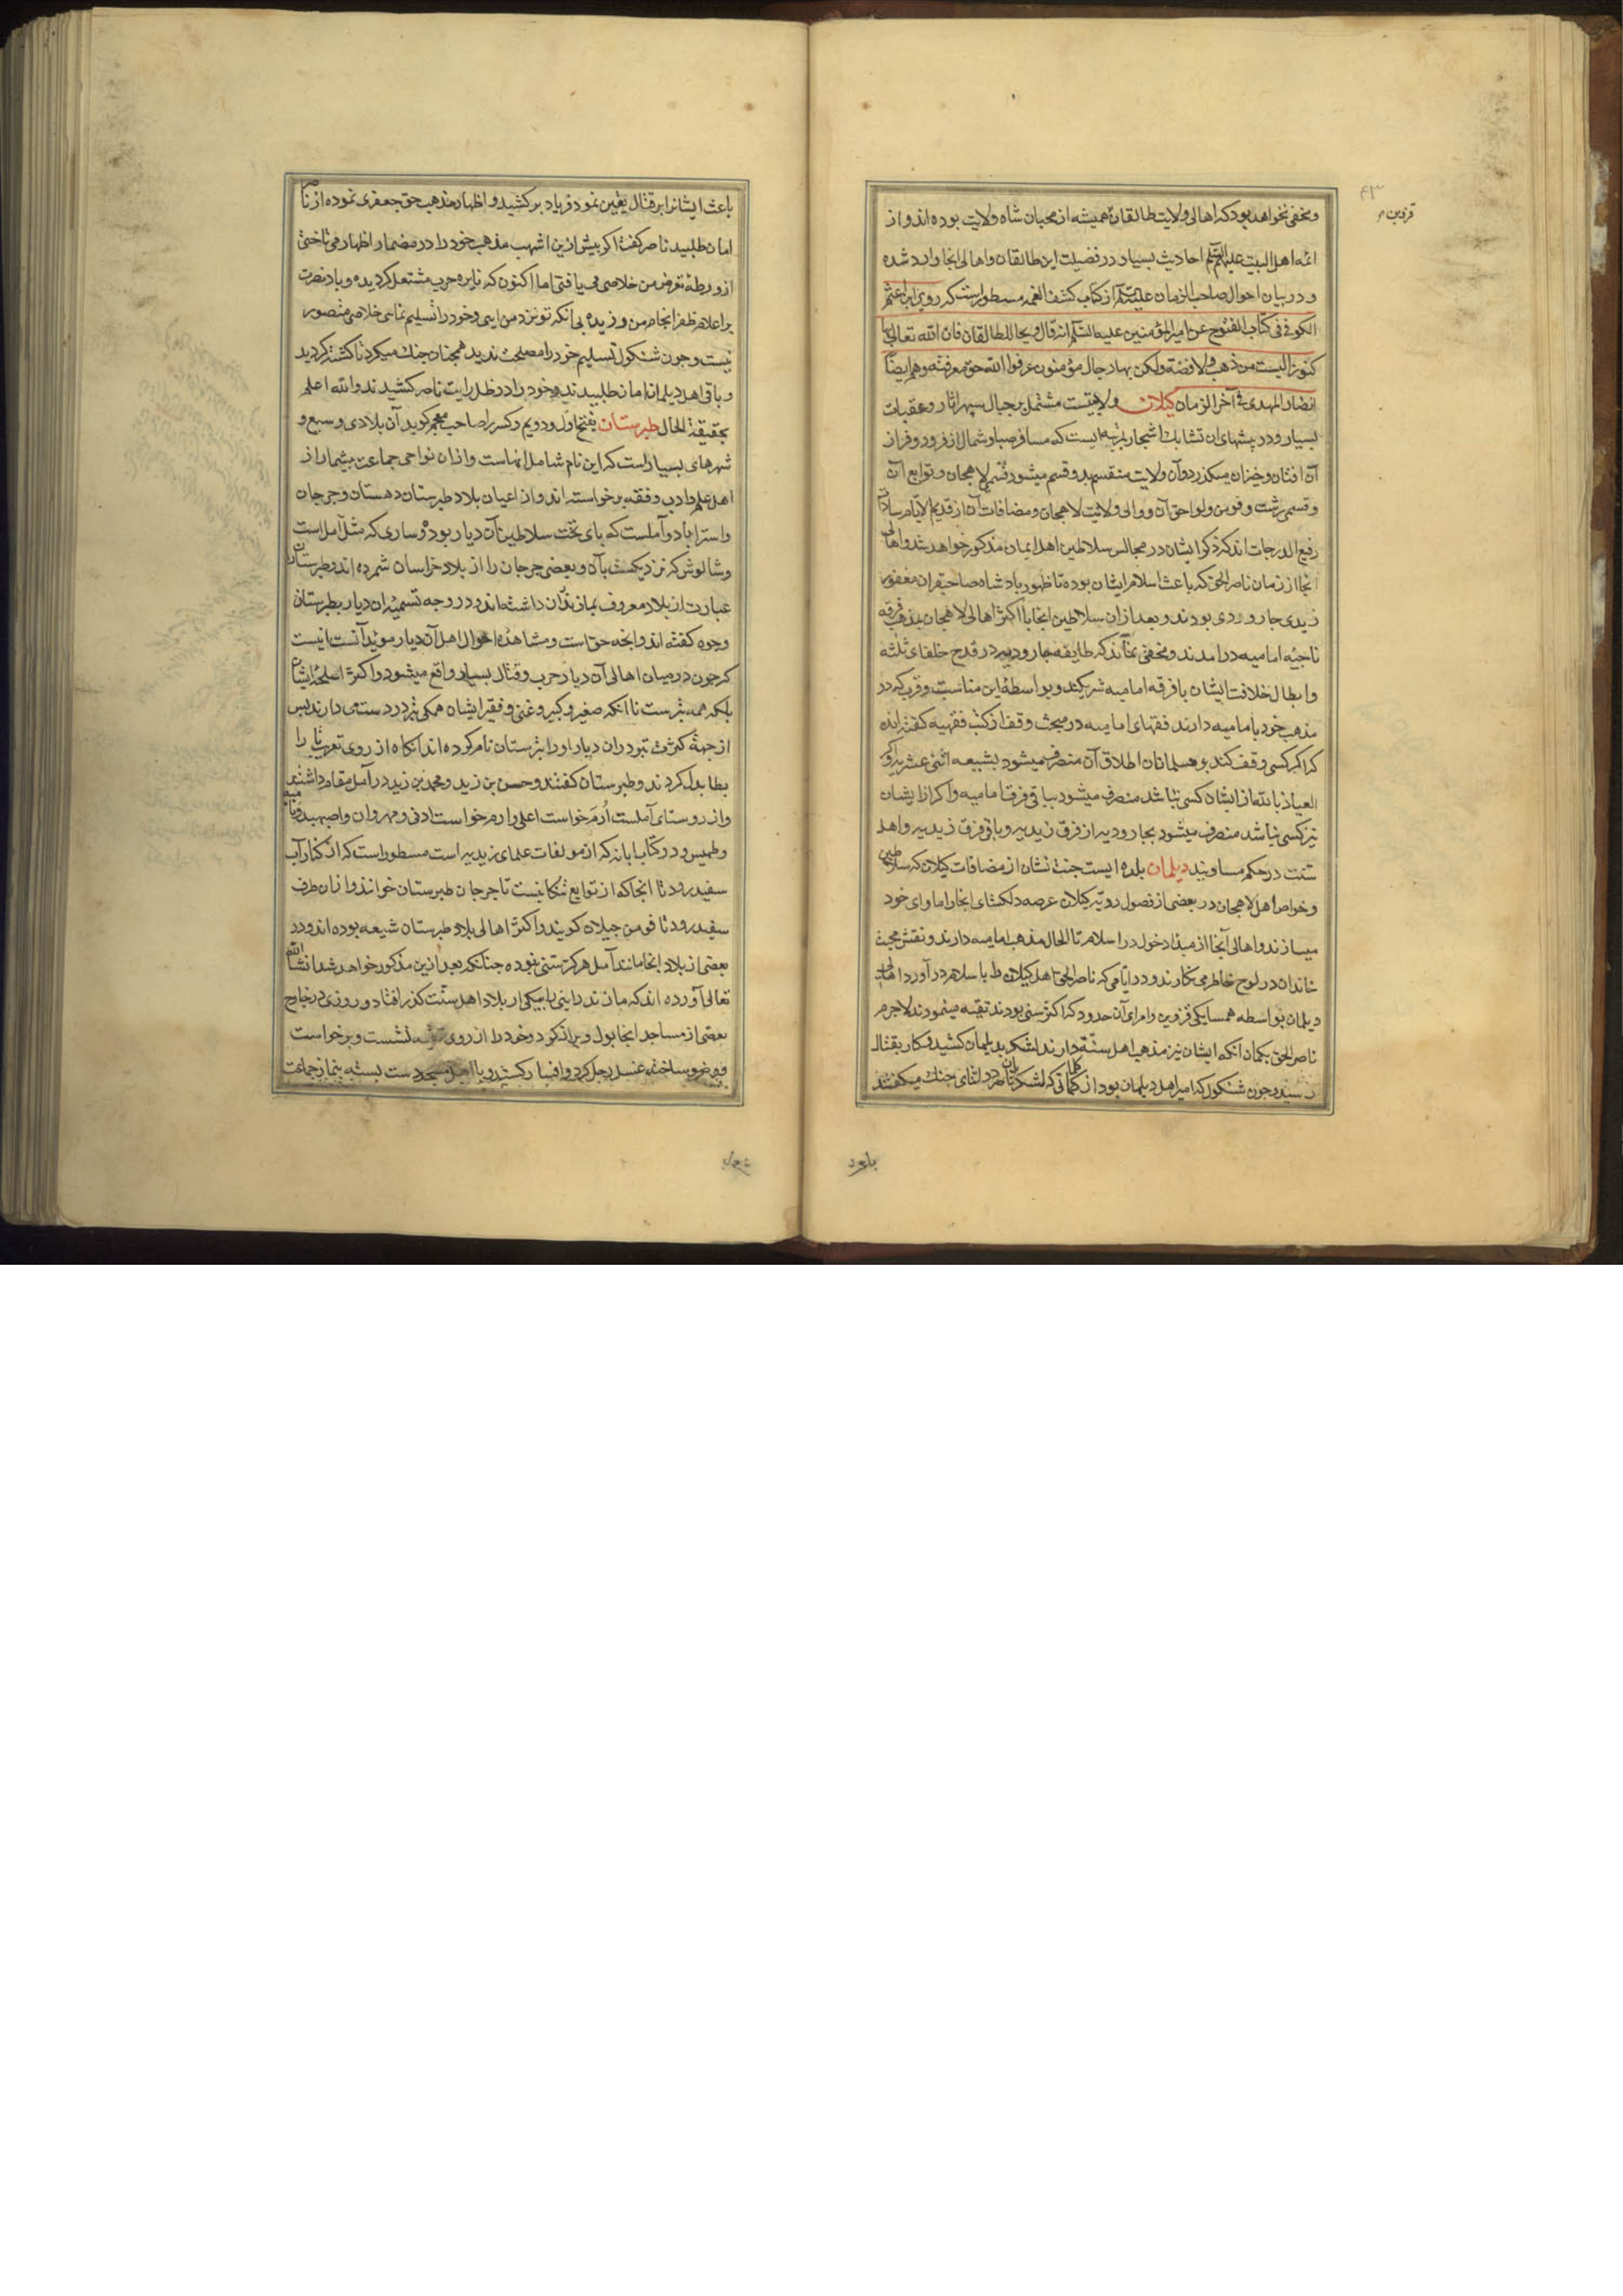 ومخفی نخواهد بود که اهالی ولایت طالقان همیشه از محبان شاه ولایت بوده اند و از
ائمه اهل البیت علیهم السلم احادیث بسیار در فضیلت این طالقان و اهالی انجا وارد شده
و در بیان احوال صاحب الزمان علیه السلم از کتاب کشف الغمه مسطور است که روی ابن اعثم
الکوفی فی کتاب الفتوح عن امیر المؤمنین علیه السلم انه قال ویحا للطالقان فان الله تعالی بها
کنوزا لیست من ذهب ولا فضة ولکن بها رجال مؤمنون عرفوا الله حق معرفته وهم ایضا
انصار المهدی فی آخر الزمان کیلان ولایتیست مشتمل بر جبال سپهر اثار و عقبات
بسیار و در بیشهای ان تشابک اشجار بمرتبه ایست که مسافر صبا و شمال از فرود و فراز
آن افتان و خیزان میکذرد و آن ولایت منقسم بدو قسم میشود قسمی لاهجان و توابع آن
و قسمی رشت و فومن و لواحق آن و والی ولایت لاهجان و مضافات آن از قدیم الایام سادات
رفیع الدرجات اند که ذکر ایشان در مجالس سلاطین اهل ایمان مذکور خواهد شد و اهالی
انجا از زمان ناصر الحق که باعث اسلام ایشان بوده تا ظهور پادشاه صاحبقران مغفور
زیدی جارودی بودند و بعد از ان سلاطین انجا با اکثر اهالی لاهجان بمذهب فرقه
ناجیه امامیه در امدند و مخفی نماند که طایفه جارودیه در قدح خلفای ثلثه
و ابطال خلافت ایشان با فرقه امامیه شریکند و بواسطه این مناسبت و قرب که در
مذهب خود با امامیه دارند فقهای امامیه در مبحث وقف از کتب فقهیه کفته اند
که اکر کسی وقف کند بر مسلمانان اطلاق آن منصرف میشود بشیعه اثنی عشریه و اکر
العیاذ بالله از ایشان کسی نباشد منصرف میشود بباقی فرق امامیه و اکر از ایشان
نیز کسی نباشد منصرف میشود بجارودیه از فرق زیدیه و باقی فرق زیدیه و اهل
سنت در حکم مساویند دیلمان بلده ایست جنت نشان از مضافات کیلان که سلاطین
و خواص اهل لاهجان در بعضی از فصول رو به کیلان عرصه دلکشای انجا را ماوای خود
میسازند و اهالی آنجا از مبدا دخول در اسلام تا الحال مذهب امامیه دارند و نقش محبت
خاندان در لوح خاطر می نکارند و در ایامی که ناصر الحق اهل کیلان را باسلام در آورد اهالی
دیلمان بواسطه همسایکی قزوین و امرای آن حدود که اکثر سنی بودند تقیه مینمودند لاجرم
ناصر الحق بکمان آنکه ایشان نیز مذهب اهل سنة دارند لشکر بدیلمان کشید و کار بقتال
رسید و چون شنکول که امیر اهل دیلمان بود از کلماتی که لشکریان ناصر در اثنای جنک میکفتند
باعث
قزوین
باعث ایشانرا بر قتال یقین نمود فریاد بر کشید و اظهار مذهب حق جعفری نموده از ناصر
امان طلبید ناصر کفت اکر پیش ازین اشهب مذهب خود را در مضمار اظهار می تاختی
از ورطه تعرض من خلاصی می یافتی اما اکنون که نایره حرب مشتعل کردیده و باد نصرت
بر اعلام ظفر انجام من وزیده بی آنکه تو نزد من ایی و خود را تسلیم نمایی خلاصی متصور
نیست و چون شنکول تسلیم خود را مصلحت ندید همچنان جنک میکرد تا کشته کردید
و باقی اهل دیلمان امان طلبیدند و خود را در ظل رایت ناصر کشیدند والله اعلم
بحقیقة الحال طبرستان بفتح اول و دویم و کسر را صاحب معجم کوید آن بلادی وسیع و
شهرهای بسیار است که این نام شامل انهاست و از ان نواحی جماعت بیشمار از
اهل علم و ادب و فقه برخواسته اند و از اعیان بلاد طبرستان دهستان و جرجان
و استراباد و آملست که پای تخت سلاطین آن دیار بوده و ساری که مثل آمل است
و شالوش که نزدیکست بآن و بعضی جرجان را از بلاد خراسان شمرده اند و طبرستان
عبارت از بلاد معروف بمازندران داشته اند و در وجه تسمیه ان دیار بطبرستان
وجوه کفته اند و انچه حق است و مشاهده احوال اهل آن دیار موید آنست اینست
که چون در میان اهالی آن دیار حرب و قتال بسیار واقع میشود و اکثر اسلحه ایشان
بلکه همه تبرست تا انکه صغیر و کبیر و غنی و فقیر ایشان همکی تبر در دست می دارند پس
از جهة کثرت تبر در ان دیار اورا تبرستان نام کرده اند انکاه از روی تعریب تا را
بطا بدل کردند و طبرستان کفتند و حسن بن زید و محمد بن زید در آمل مقام داشتند
و از روستای آملست ارم خواست اعلی و ارم خواست ادنی و مهروان و اصبهبد و نامیه
و طمیس و در کتاب ابانه که از مولفات علمای زیدیه است مسطور است که از کنار آب
سفیدرود تا انجا که از توابع تنکابنست تا جرجان طبرستان خوانند و از ان طرف
سفیدرود تا فومن جیلان کویند و اکثر اهالی بلاد طبرستان شیعه بوده اند و در
بعضی از بلاد انجا مانند آمل هرکز سنی نبوده چنانکه بعد ازین مذکور خواهد شد انشا الله
تعالی آورده اند که مازندرانیی را بیکی از بلاد اهل سنت کذر افتاد و روزی در خارج
بعضی از مساجد انجا بول و براز کرد و خود را از روی نشست و برخواست
وضو ساخته غسل رجل کرد و افسار کشید و با اهل مسجد دست بسته بنماز جماعت